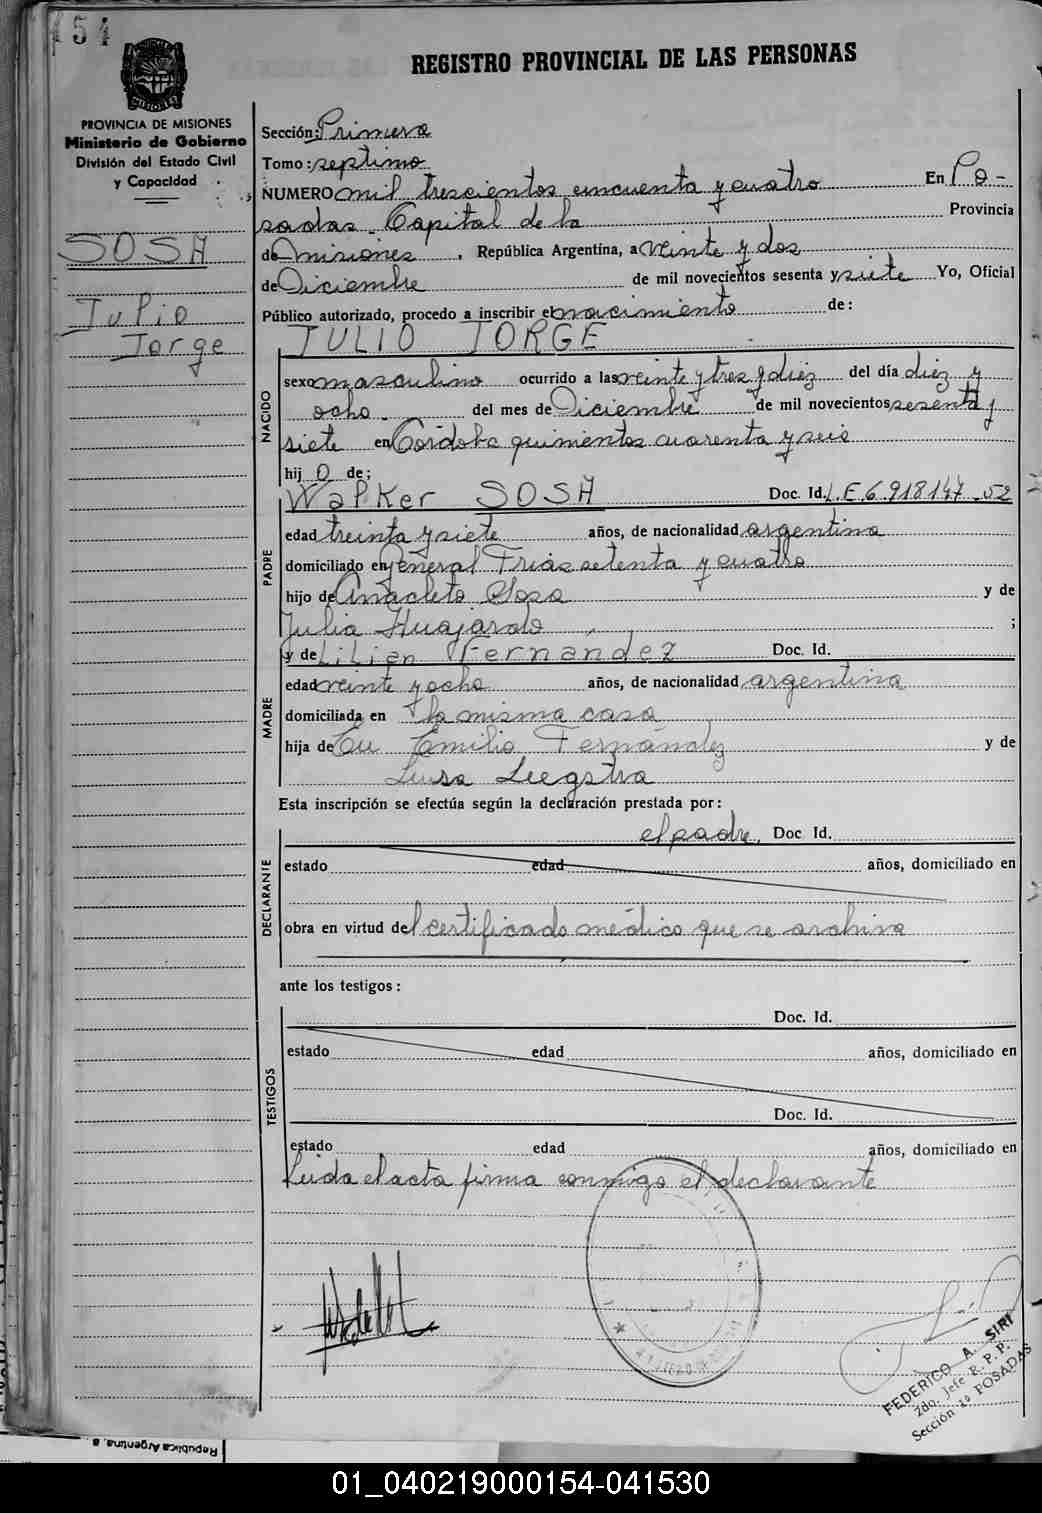 154
REGISTRO PROVINCIAL DE LAS PERSONAS
MISIONES
PROVINCIA DE MISIONES
Ministerio de Gobierno
División del Estado Civil
y Capacidad
SOSA
Julio
Jorge
Sección: Primera
Tomo: septimo
NUMERO mil trescientos cincuenta y cuatro En Po-
sadas Capital de la Provincia
de Misiones, República Argentina, a veinte y dos
de Diciembre de mil novecientos sesenta y siete Yo, Oficial
Público autorizado, procedo a inscribir el nacimiento de:
JULIO JORGE
NACIDO
sexo masculino ocurrido a las veinte y tres y diez del día diez y
ocho del mes de Diciembre de mil novecientos sesenta y
siete en Córdoba quinientos cuarenta y seis
hij o de;
PADRE
Walker SOSA Doc. Id. L.E 6.918147-52
edad treinta y siete años, de nacionalidad argentina
domiciliado en General Frias setenta y cuatro
hijo de Anacleto Sosa y de
Julia ;
y de Lilian Fernandez Doc. Id.
MADRE
edad veinte y ocho años, de nacionalidad argentina
domiciliada en la misma casa
hija de Emilio Fernández y de
Luisa Luegstra
Esta inscripción se efectúa según la declaración prestada por:
el padre, Doc. Id.
DECLARANTE
estado edad años, domiciliado en
obra en virtud del certificado médico que se archiva
ante los testigos:
TESTIGOS
Doc. Id.
estado edad años, domiciliado en
Doc. Id.
estado edad años, domiciliado en
Leida el acta firma conmigo el declarante
FEDERICO A. SIRI
2do. Jefe R. P. P.
Sección 1º POSADAS
República Argentina, a
01_040219000154-041530